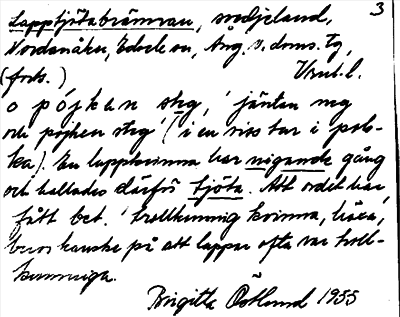 3
Lapptjötabrännan, nedjeland,
Nordanåker, Edsele sn, Ång. s. doms. tg,
(forts.) Vmt. l.
o pójkan steg, 'jäntan neg
och pojken steg' (i en viss tur i pols-
ka). En lappkvinna har nigande gång
och kallades därför tjöta. Att ordet har
fått bet. 'trollkunnig kvinna, häxa,
beror kanske på att lappar ofta var troll-
kunniga.
Brigitta Östlund 1955